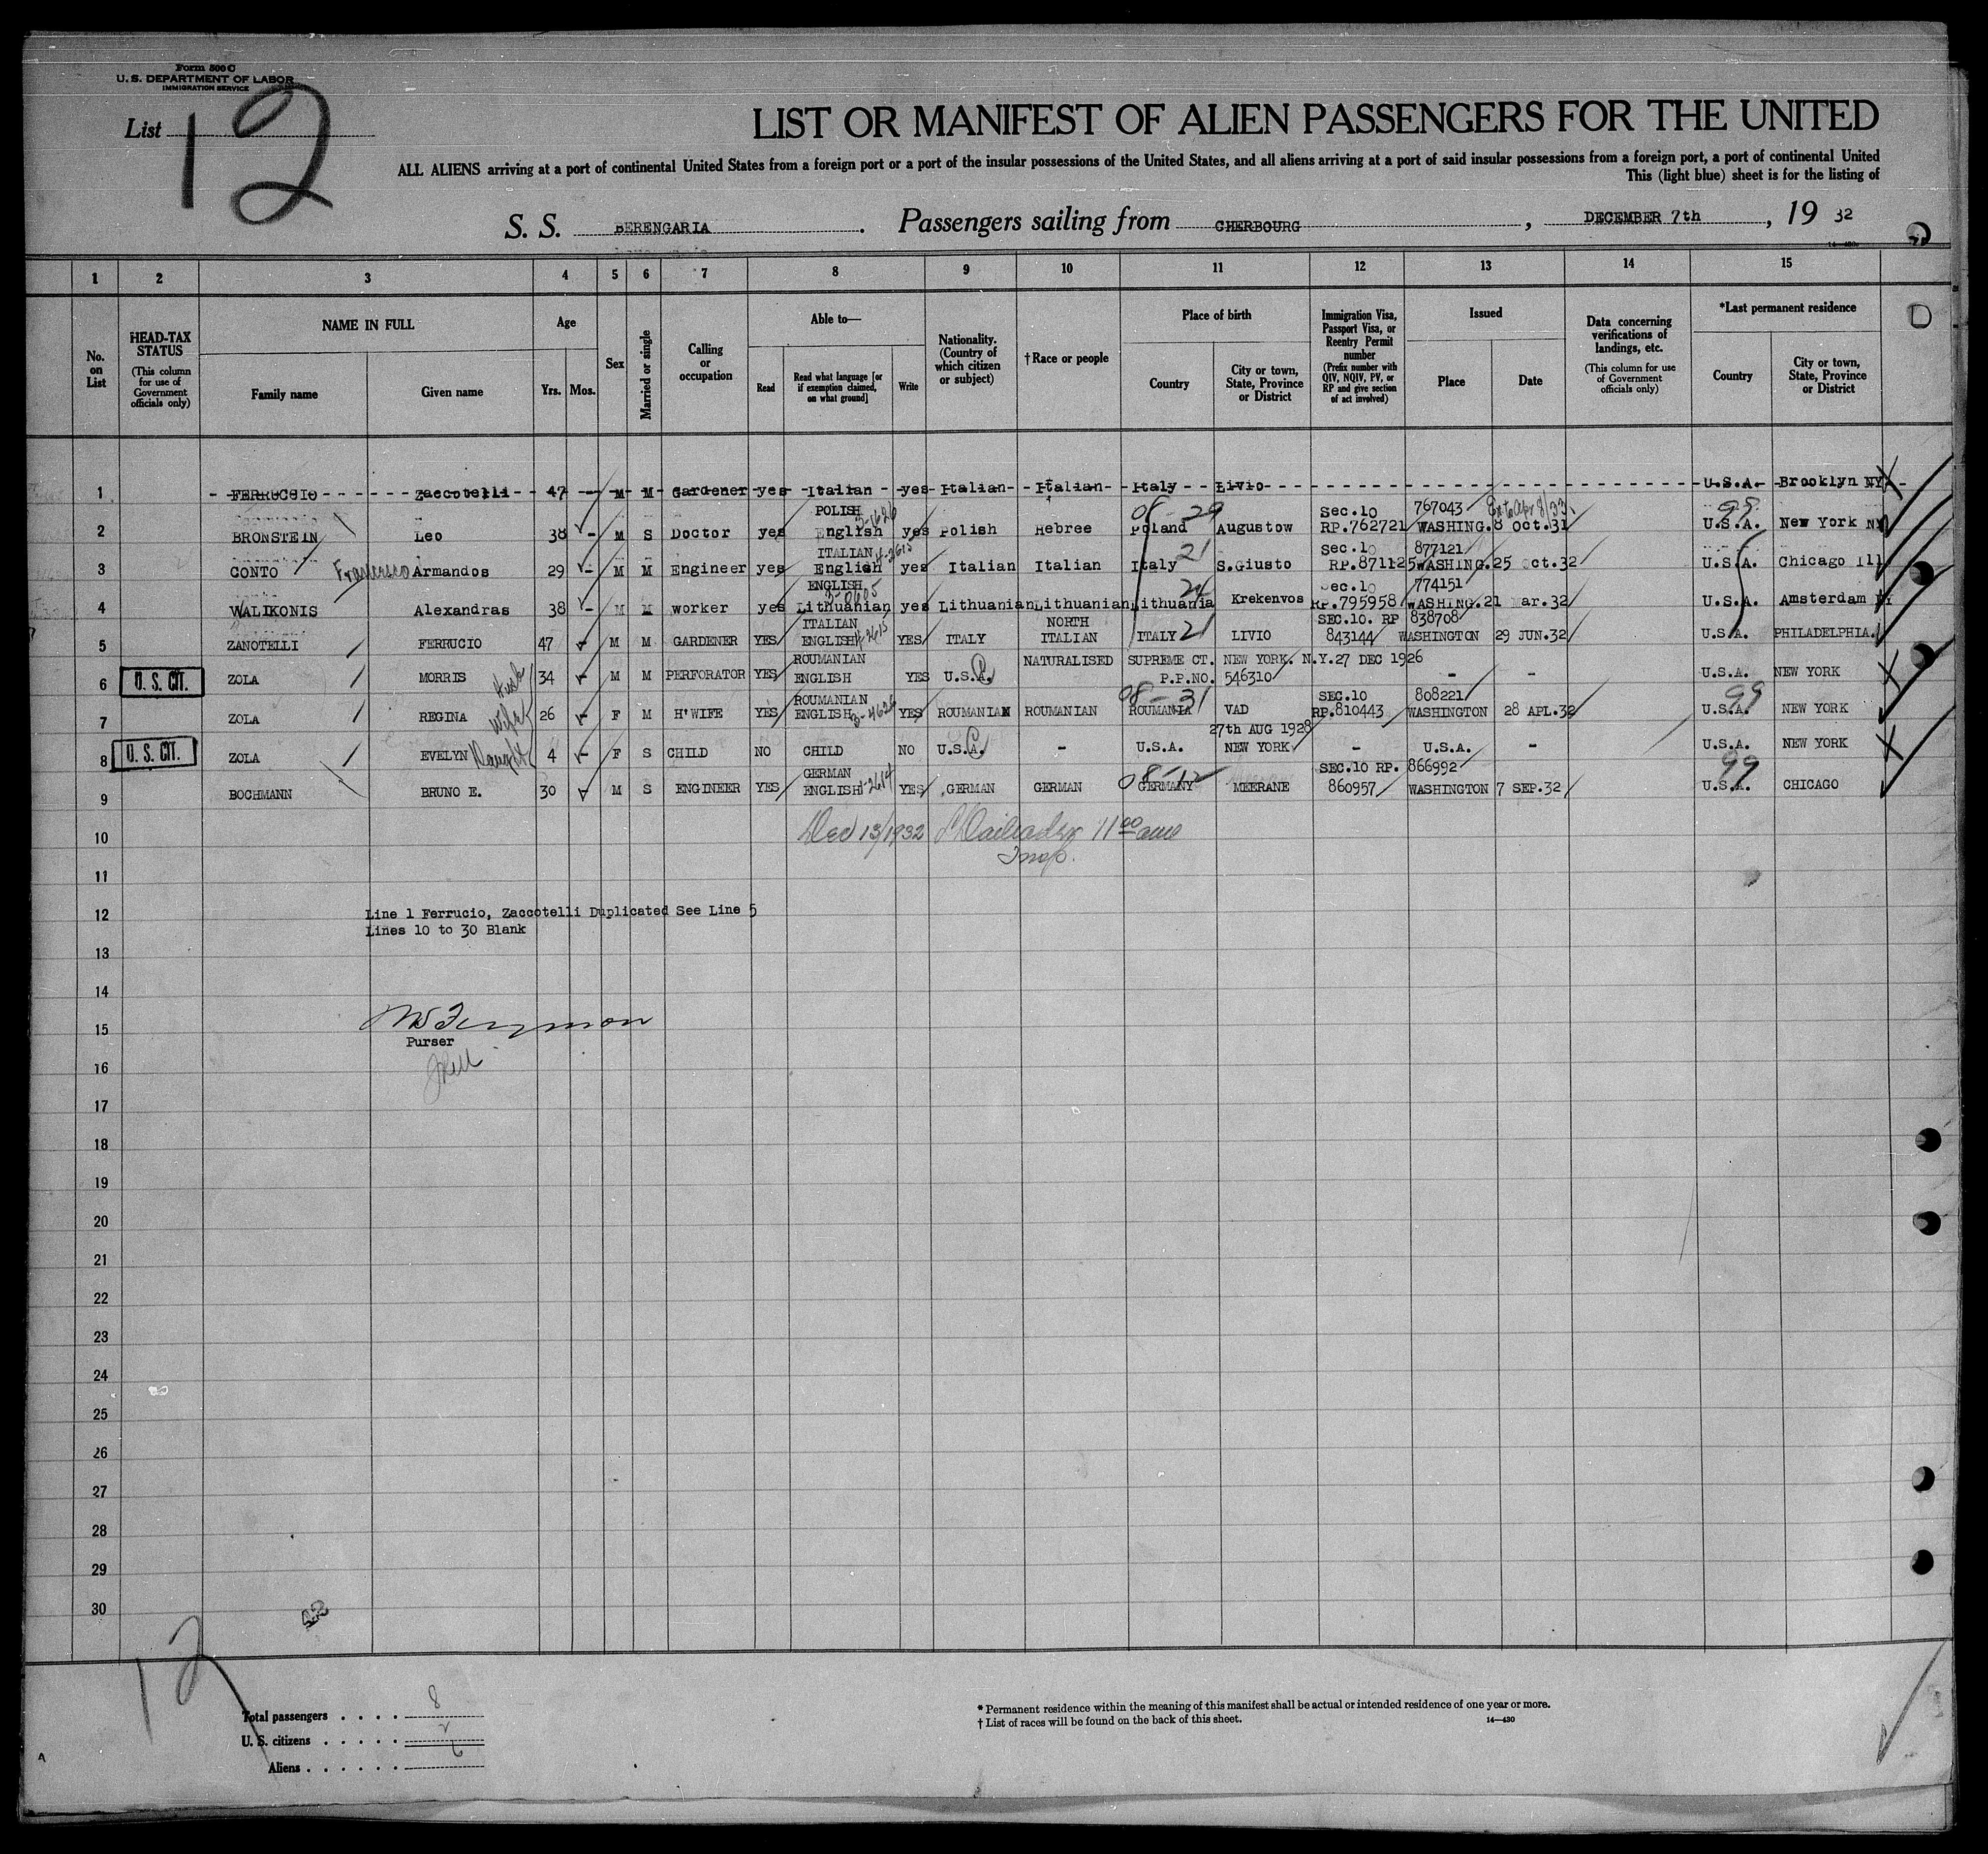 Form 500 C
U. S. DEPARTMENT OF LABOR
IMMIGRATION SERVICE
List 12
LIST OR MANIFEST OF ALIEN PASSENGERS FOR THE UNITED
ALL ALIENS arriving at a port of continental United States from a foreign port or a port of the insular possessions of the United States, and all aliens arriving at a port of said insular possessions from a foreign port, a port of continental United
This (light blue) sheet is for the listing of
S. S. BERENGARIA. Passengers sailing from CHERBOURG, DECEMBER 7th, 19 32
14—430
1 2 3 4 5 6 7 8 9 10 11 12 13 14 15
No. on List
HEAD-TAX STATUS
(This column for use of Government officials only)
NAME IN FULL
Family name
Given name
Age
Yrs. Mos.
Sex
Married or single
Calling or occupation
Able to—
Read
Read what language [or if exemption claimed, on what ground]
Write
Nationality. (Country of which citizen or subject)
†Race or people
Place of birth
Country
City or town, State, Province or District
Immigration Visa, Passport Visa, or Reentry Permit number
(Prefix number with QIV, NQIV, PV, or RP and give section of act involved)
Issued
Place
Date
Data concerning verifications of landings, etc.
(This column for use of Government officials only)
*Last permanent residence
Country
City or town, State, Province or District
1 FERRUCCIO Zaccotelli 47 - M M Gardener yes Italian yes Italian Italian Italy Livio U.S.A. Brooklyn NY
POLISH 3-1626 08-29 Sec.10 767043 Ext to Apr 8/33. 99
2 BRONSTEIN Leo 38 - M S Doctor yes English yes Polish Hebree Poland Augustow RP.762721 WASHING. 8 Oct.31 U.S.A. New York NY
ITALIAN 4-2615 21 Sec.10 877121
3 CONTO Francesco Armandos 29 - M M Engineer yes English yes Italian Italian Italy S.Giusto RP.871125 WASHING. 25 Oct.32 U.S.A. Chicago Ill
ENGLISH 3-0605 24 Sec.10 774151
4 WALIKONIS Alexandras 38 - M M worker yes Lithuanian yes Lithuanian Lithuanian Lithuania Krekenvos RP.795958 WASHING. 21 Mar.32 U.S.A. Amsterdam
ITALIAN 4-2615 NORTH 21 SEC.10. RP 838708
5 ZANOTELLI FERRUCIO 47 - M M GARDENER YES ENGLISH YES ITALY ITALIAN ITALY LIVIO 843144 WASHINGTON 29 JUN.32 U.S.A. PHILADELPHIA.
ROUMANIAN NATURALISED SUPREME CT. NEW YORK. N.Y.27 DEC 1926
6 U. S. CIT. ZOLA MORRIS Husb 34 - M M PERFORATOR YES ENGLISH YES U.S.A. P.P.NO. 546310 - - U.S.A. NEW YORK
ROUMANIAN 3-4626 08-31 SEC.10 808221 99
7 ZOLA REGINA Wife 26 - F M H'WIFE YES ENGLISH YES ROUMANIAN ROUMANIAN ROUMANIA VAD RP.810443 WASHINGTON 28 APL.32 U.S.A. NEW YORK
27th AUG 1928
8 U. S. CIT. ZOLA EVELYN Daught 4 - F S CHILD NO CHILD NO U.S.A. - U.S.A. NEW YORK - U.S.A. - U.S.A. NEW YORK
GERMAN 4-2614 08-12 SEC.10 RP. 866992 99
9 BOCHMANN BRUNO E. 30 M S ENGINEER YES ENGLISH YES GERMAN GERMAN GERMANY MEERANE 860957 WASHINGTON 7 SEP.32 U.S.A. CHICAGO
10 Dec 13/1932 11 00 am
Insp.
11
12 Line 1 Ferrucio, Zaccotelli Duplicated See Line 5
Lines 10 to 30 Blank
13
14
15
Purser
16
17
18
19
20
21
22
23
24
25
26
27
28
29
30
12
Total passengers . . . . 8
U. S. citizens . . . . . 2
Aliens . . . . . . 6
* Permanent residence within the meaning of this manifest shall be actual or intended residence of one year or more.
† List of races will be found on the back of this sheet.
14—430